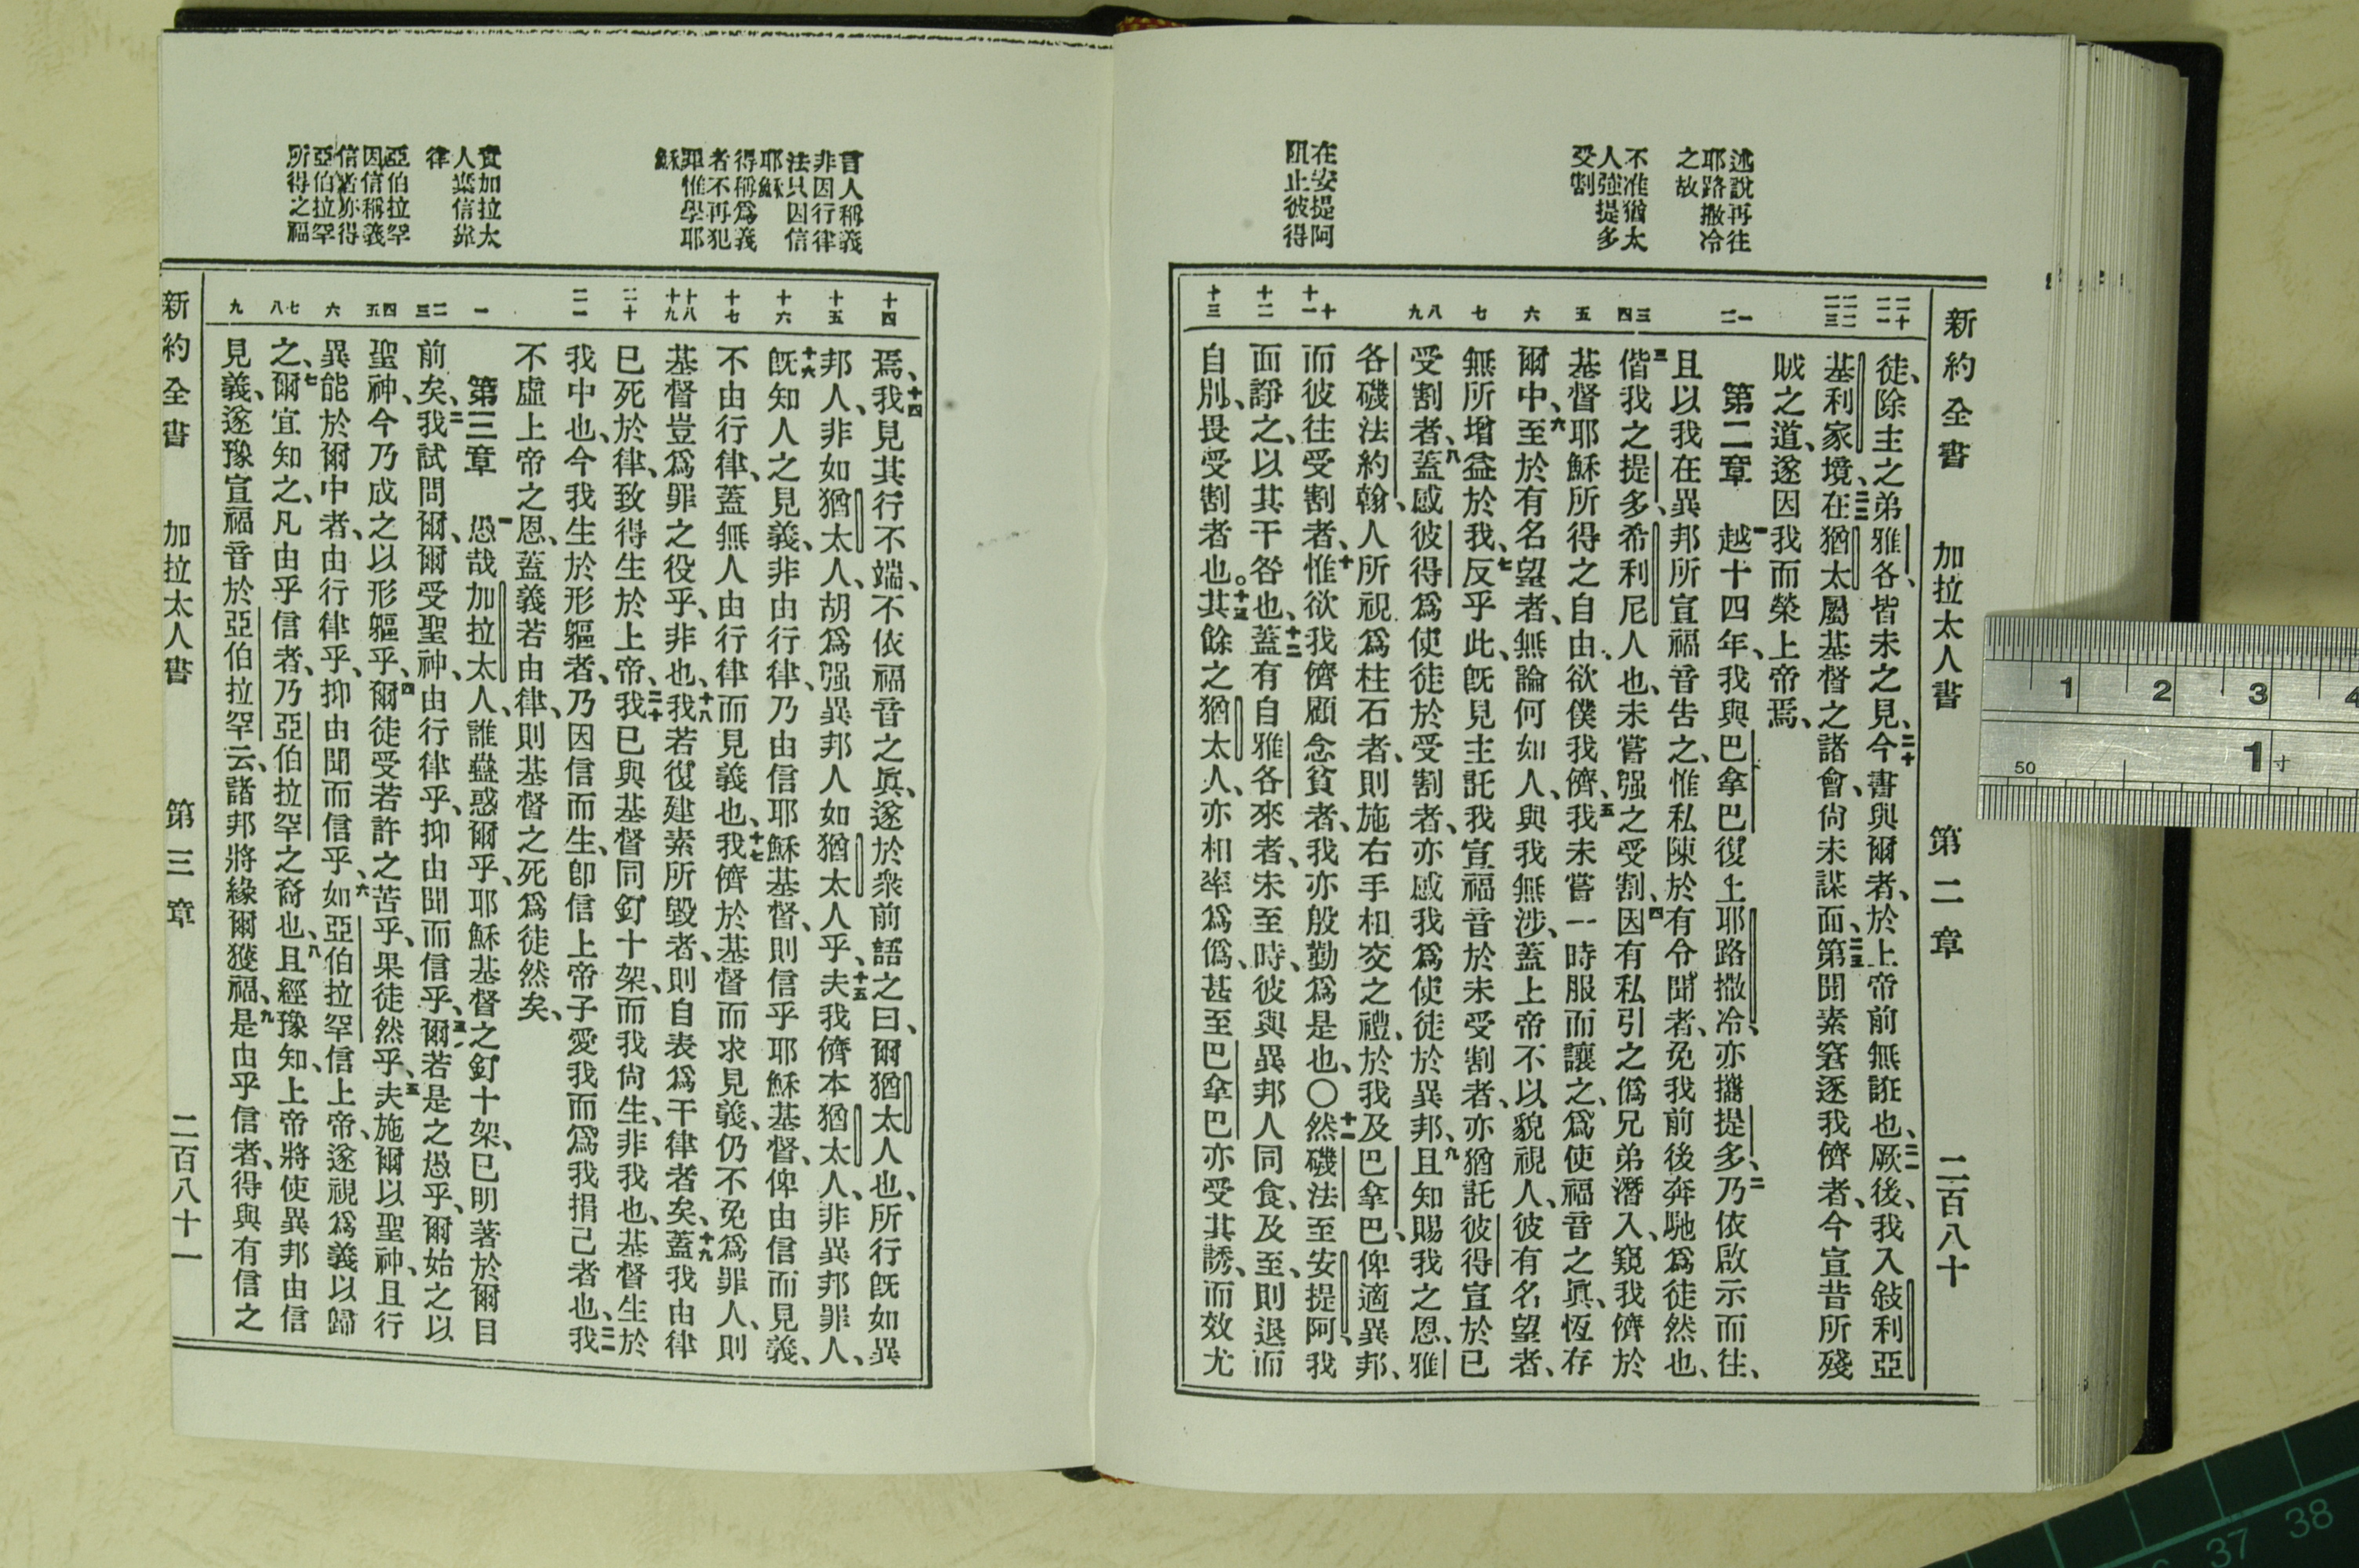 新約全書 加拉太人書 第二章 二百八十
述說再往
耶路撒冷
之故
不准猶太
人強提多
受割
在安提阿
阻止彼得
二十 二一
二二 二三
一 二
三 四
五
六
七
八 九
十 十一
十二
十三
徒、除主之弟雅各、皆未之見、二十今書與爾者、於上帝前無誑也、二一厥後、我入敍利亞
基利家境、二二在猶太屬基督之諸會、尙未謀面、二三第聞素窘逐我儕者、今宣昔所殘
賊之道、遂因我而榮上帝焉、
第二章 一越十四年、我與巴拿巴復上耶路撒冷、亦攜提多、二乃依啟示而往、
且以我在異邦所宣福音吿之、惟私陳於有令聞者、免我前後奔馳爲徒然也、
三偕我之提多、希利尼人也、未嘗强之受割、四因有私引之僞兄弟潛入、窺我儕於
基督耶穌所得之自由、欲僕我儕、五我未嘗一時服而讓之、爲使福音之眞、恆存
爾中、六至於有名望者、無論何如人、與我無涉、蓋上帝不以貌視人、彼有名望者、
無所增益於我、七反乎此、旣見主託我宣福音於未受割者、亦猶託彼得宣於已
受割者、八蓋感彼得爲使徒於受割者、亦感我爲使徒於異邦、九且知賜我之恩、雅
各磯法約翰、人所視爲柱石者、則施右手相交之禮、於我及巴拿巴、俾適異邦、
而彼往受割者、十惟欲我儕顧念貧者、我亦殷勤爲是也、〇十一然磯法至安提阿、我
面諍之、以其干咎也、十二蓋有自雅各來者、未至時、彼與異邦人同食、及至、則退而
自別、畏受割者也。十三其餘之猶太人、亦相率爲僞、甚至巴拿巴亦受其誘、而效尤
言人稱義
非因行律
法只因信
耶穌
得稱爲義
者不再犯
罪惟學耶
穌
責加拉太
人棄信靠
律
亞伯拉罕
因信稱義
信者亦得
亞伯拉罕
所得之福
十四
十五
十六
十七
十八 十九
二十
二一
一
二 三
四 五
六
七 八
九
焉、十四我見其行不端、不依福音之眞、遂於衆前語之曰、爾猶太人也、所行旣如異
邦人、非如猶太人、胡爲强異邦人如猶太人乎、十五夫我儕本猶太人、非異邦罪人、
十六旣知人之見義、非由行律、乃由信耶穌基督、則信乎耶穌基督、俾由信而見義、
不由行律、蓋無人由行律而見義也、十七我儕於基督而求見義、仍不免爲罪人、則
基督豈爲罪之役乎、非也、十八我若復建素所毀者、則自表爲干律者矣、十九蓋我由律
已死於律、致得生於上帝、二十我已與基督同釘十架、而我尙生、非我也、基督生於
我中也、今我生於形軀者、乃因信而生、卽信上帝子愛我而爲我捐己者也、二一我
不虛上帝之恩、蓋義若由律、則基督之死爲徒然矣、
第三章 一愚哉加拉太人、誰蠱惑爾乎、耶穌基督之釘十架、已明著於爾目
前矣、二我試問爾、爾受聖神、由行律乎、抑由聞而信乎、三爾若是之愚乎、爾始之以
聖神、今乃成之以形軀乎、四爾徒受若許之苦乎、果徒然乎、五夫施爾以聖神、且行
異能於爾中者、由行律乎、抑由聞而信乎、六如亞伯拉罕信上帝、遂視爲義以歸
之、七爾宜知之、凡由乎信者、乃亞伯拉罕之裔也、八且經豫知、上帝將使異邦由信
見義、遂豫宣福音於亞伯拉罕云、諸邦將緣爾獲福、九是由乎信者、得與有信之
新約全書 加拉太人書 第三章 二百八十一
1 2 3 4
50
1寸
37 38